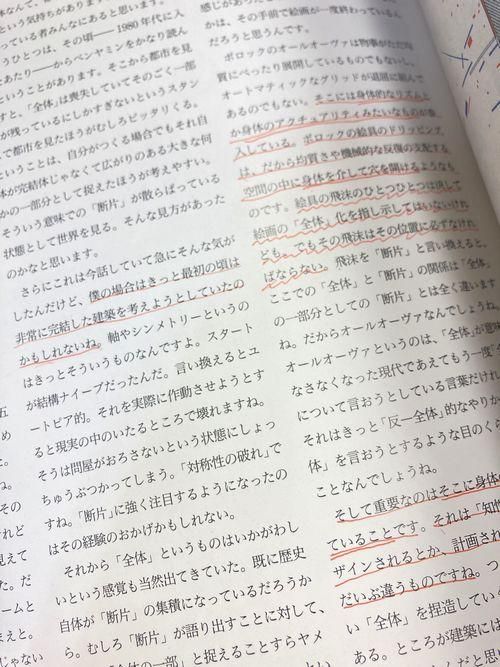 本なんて、
いう気持ちがあります
っている者みんなにあると思います。
うひとつは、その頃――1980年代に入
あたり――からベンヤミンをかなり読ん
ということがあります。そこから都市を見
すと、「全体」は喪失していてそのごく一部
が残っているにしかすぎないというスタン
で都市を見たほうがむしろピッタリくる。
ということは、自分がつくる場合でもそれ自
体が完結体じゃなくて広がりのある大きな何
かの一部分として捉えたほうが考えやすい。
そういう意味での「断片」が散らばっている
状態として世界を見る。そんな見方があった
のかなと思います。
さらにこれは今話していて急にそんな気が
したんだけど、僕の場合はきっと最初の頃は
非常に完結した建築を考えようとしていたの
かもしれないね。軸やシンメトリーというの
はきっとそういうものなんですよ。スタート
が結構ナイーブだったんだ。言い換えるとユ
ートピア的。それを実際に作動させようとす
ると現実の中のいたるところで壊れますね。
そうは問屋がおろさないという状態にしょっ
ちゅうぶつかってしまう。「対称性の破れ」で
すね。「断片」に強く注目するようになったの
はその経験のおかげかもしれない。
それから「全体」というものはいかがわし
いという感覚も当然出てきていた。既に歴史
自体が「断片」の集積になっているだろうか
ら。むしろ「断片」が語り出すことに対して、
「全体の一部」と捉えることすらヤメ
感じがあった
かは、その手前で絵画が一度終わっているん
だろうと思うんです。
ポロックのオールオーヴァは物事がただ均
質にべったり展開しているものでもないし、
オートマティックなグリッドが退屈に並んで
あるのでもない。そこには身体的なリズムと
か身体のアクチュアリティみたいなものが参
入している。ポロックの絵具のドリッピング
は、だから均質さや機械的な反復の支配する
空間の中に身体を介して穴を開けるようなも
のです。絵具の飛沫のひとつひとつは決して
絵画の「全体」化を指し示してはいないけれ
ども、でもその飛沫はその位置に必ずなけれ
ばならない。飛沫を「断片」と言い換えると、
ここでの「全体」と「断片」の関係は「全体」
の一部分としての「断片」とは全く違います
ね。だからオールオーヴァなんでしょうね。
オールオーヴァというのは、「全体」が意味
なさなくなった現代であえてもう一度「全
について言おうとしている言葉だけれ
それはきっと「反―全体」的なやりか
体」を言おうとするような目のくら
ことなんでしょうね。
そして重要なのはそこに身体
ていることです。それは「知性
ザインされるとか、計画され
だいぶ違うものですね。つ
い「全体」を捏造している
ある。ところが建築には